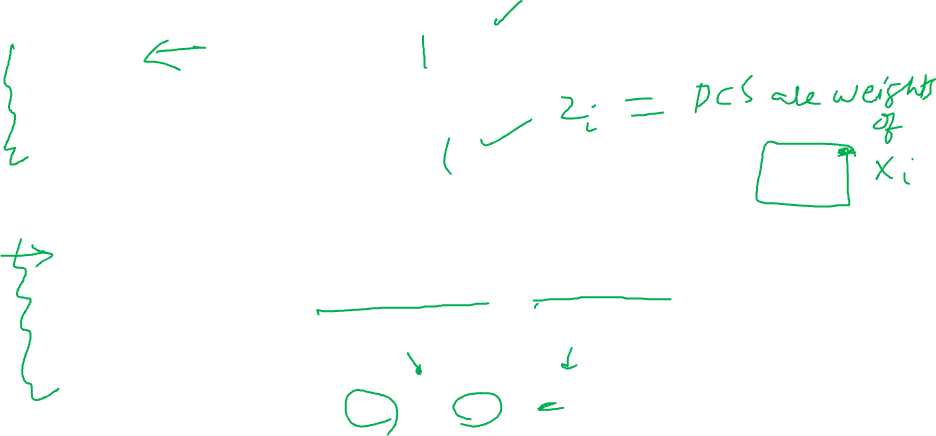 Zi = PCS are weights
of
Xi